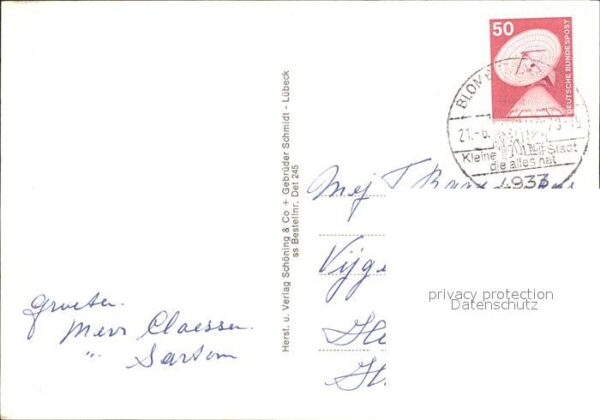 50
DEUTSCHE BUNDESPOST
BLOM
21.-6.
Kleine Stadt
die alles hat
4933
Herst. u. Verlag Schöning & Co + Gebrüder Schmidt - Lübeck
ss Bestellnr. Det 245
Mej T
Vijge
He
privacy protection
Datenschutz
Groeten.
Mevr Claessen.
" Sartom